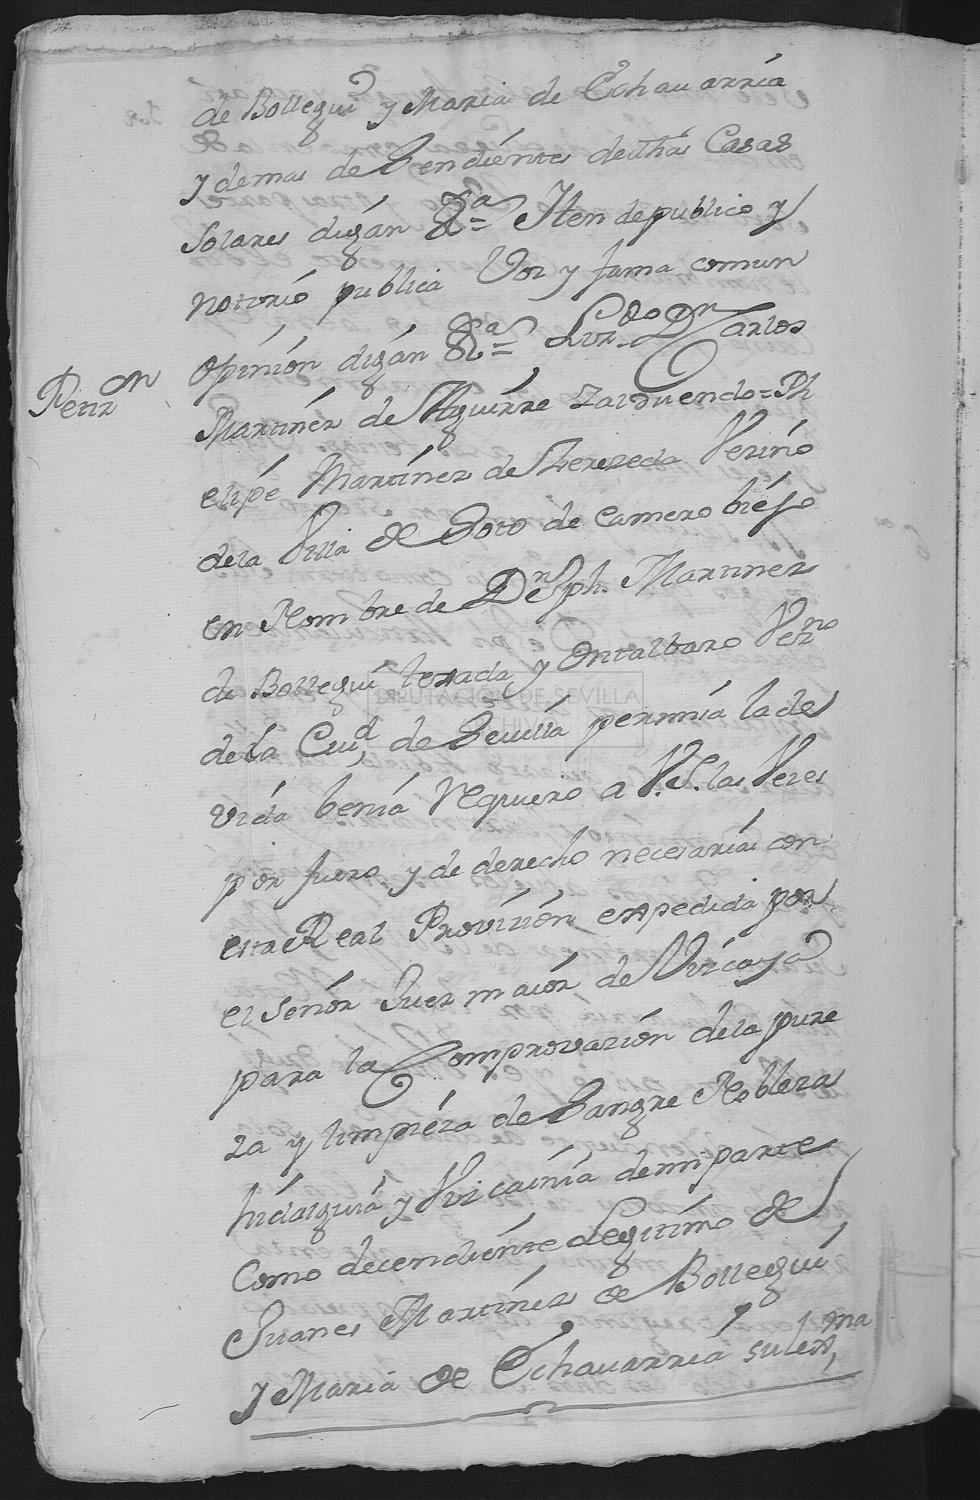 de Bollegui y Maria de Echavarria
y demas desendientes de dhas Casas
Solares digan &ª = Iten de publico y
notorio publica Voz y fama comun
opinion digan &ª = Lizdo Dn Carlos
Petizon
Martinez de Aguirre Zalduendo = Ph
elipe Martinez de Herezeda Vezino
de la Villa de Soto de Camero biejo
en Nombre de Dn Jph. Martinez
de Bollegui texada y Ontalbaro Vezno
de la Ciud de Sevilla permisa la de
DIPUTACIÓN DE SEVILLA
ARCHIVO
vida benia requiero a V.S. las Vezes
por fuero y de derecho necesarias con
esta Real Provision expedida por
el señor Juez maior de Vizcaya
para la Comprovazion de la pure
za y limpieza de Sangre Nobleza
hidalguia y Vizcainia de mi parte
Como decendiente Legitimo de
Juanes Martinez de Bollegui
y Maria de Echavarria su lexma